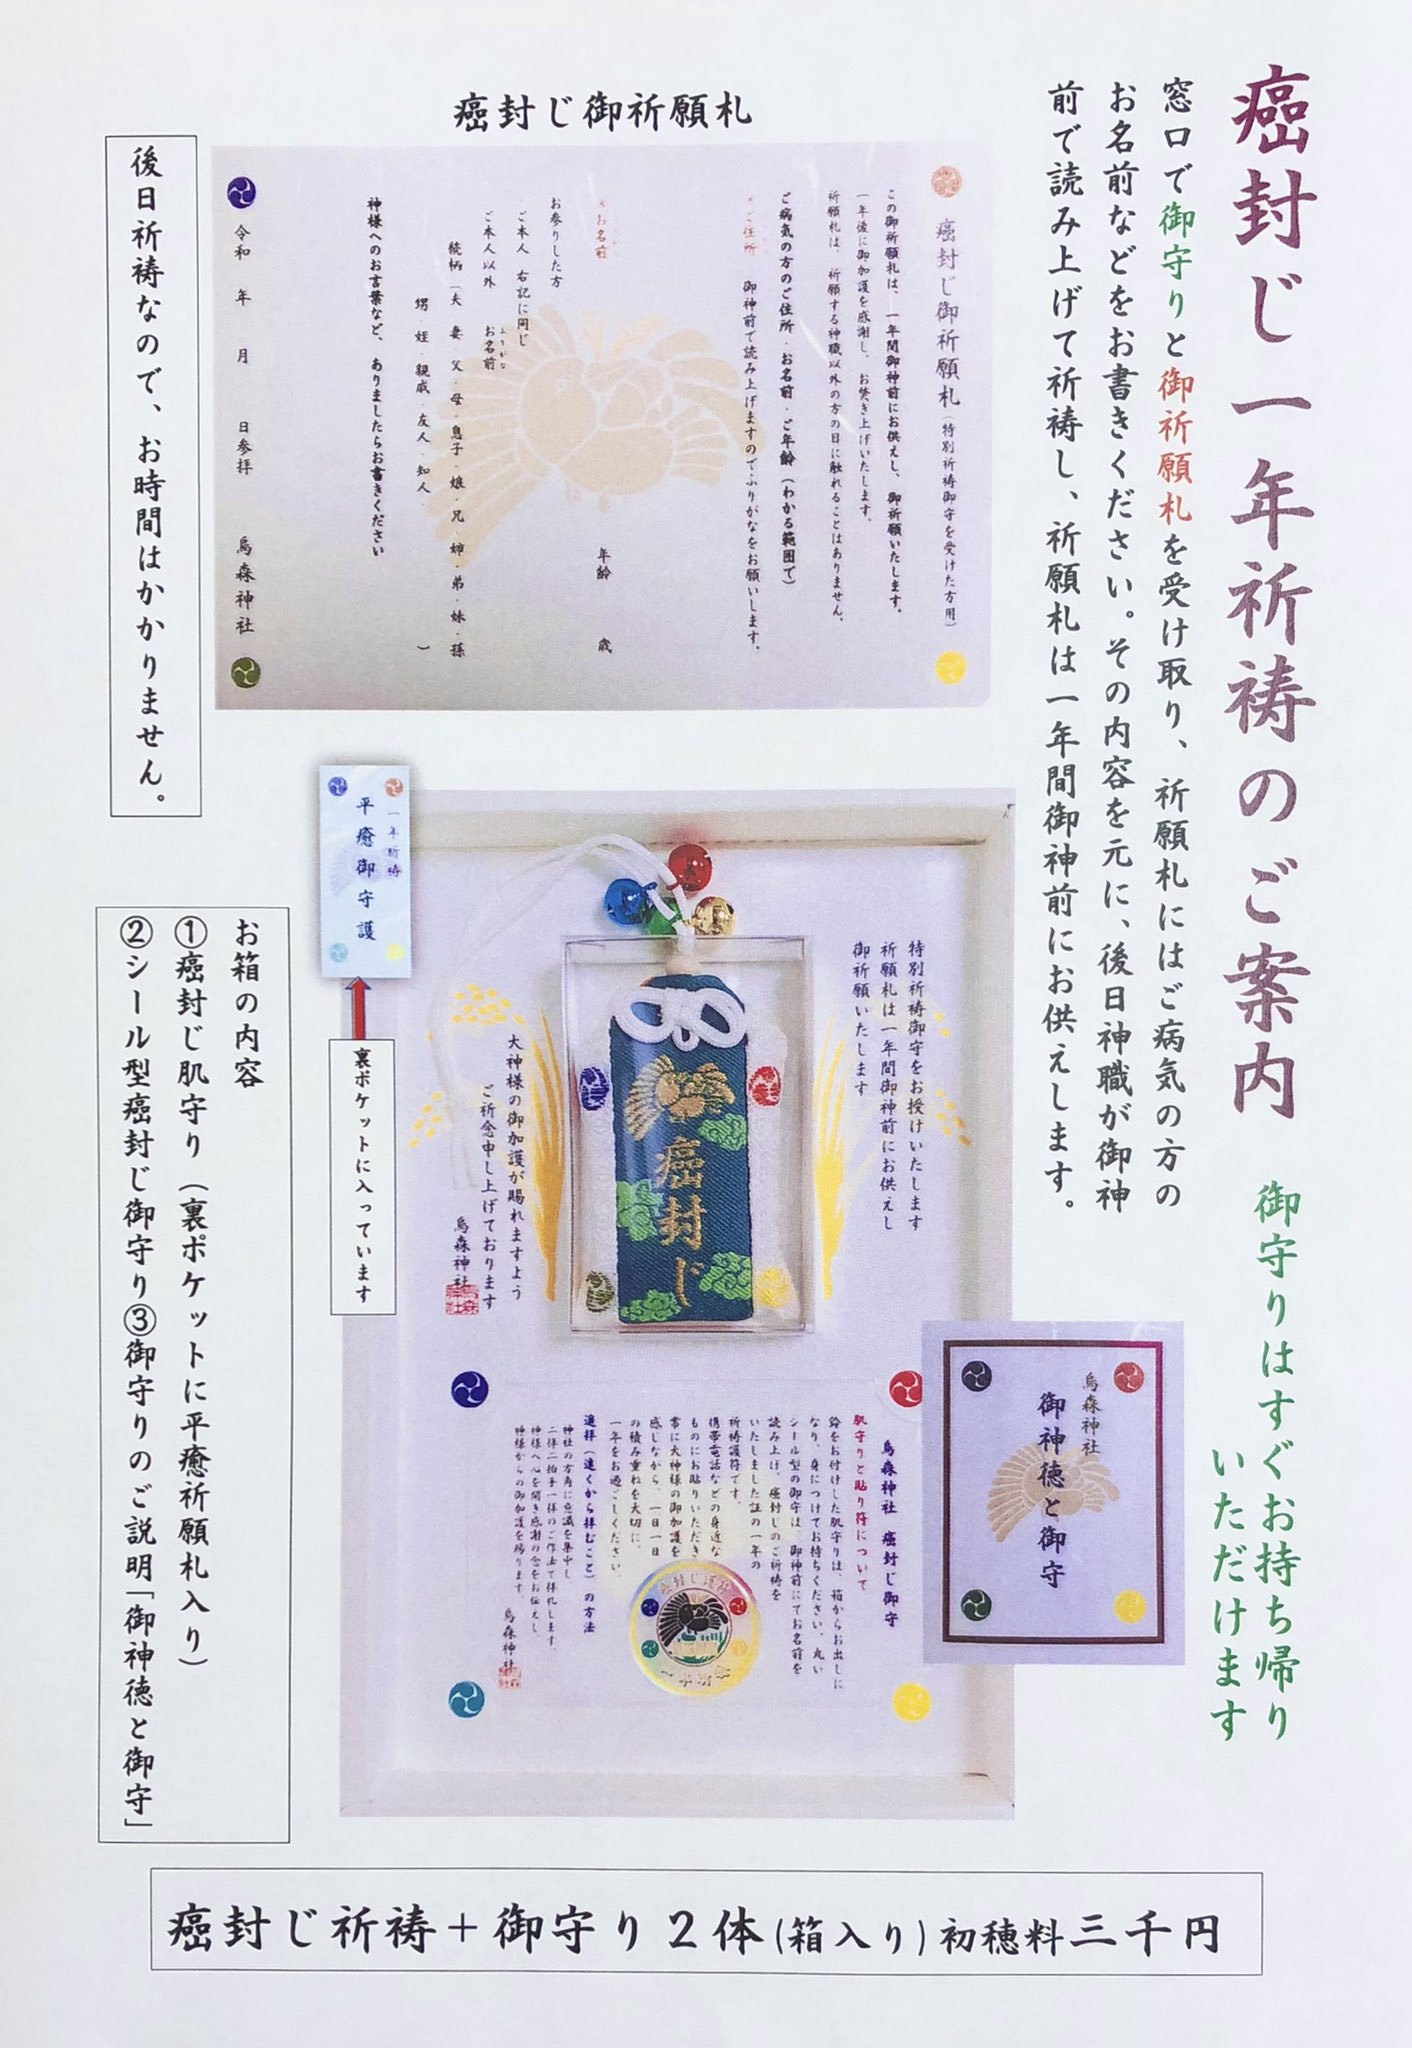 癌封じ一年祈祷のご案内
御守りはすぐお持ち帰り
いただけます
窓口で御守りと御祈願札を受け取り、祈願札にはご病気の方の
お名前などをお書きください。その内容を元に、後日神職が御神
前で読み上げて祈祷し、祈願札は一年間御神前にお供えします。
癌封じ御祈願札
癌封じ御祈願札(特別祈祷御守を受けた方用)
この御祈願札は、一年間御神前にお供えし、御祈願いたします。
一年後に御加護を感謝し、お焚き上げいたします。
祈願札は、祈願する神職以外の方の目に触れることはありません。
ご病気の方のご住所・お名前・ご年齢(わかる範囲で)
×ご住所 御神前で読み上げますのでふりがなをお願いします。
×お名前 年齢 歳
お参りした方
・ご本人 右記に同じ
・ご本人以外 お名前
ふりがな
続柄(夫・妻・父・母・息子・娘・兄・姉・弟・妹・孫
甥・姪・親戚・友人・知人・ )
神様へのお言葉など、ありましたらお書きください
令和 年 月 日参拝 烏森神社
後日祈祷なので、お時間はかかりません。
一年祈祷
平癒御守護
裏ポケットに入っています
特別祈祷御守をお授けいたします
祈願札は一年間御神前にお供えし
御祈願いたします
癌封じ
大神様の御加護が賜れますよう
ご祈念申し上げております
烏森神社
烏森神社
御神徳と御守
烏森神社 癌封じ御守
肌守りと貼り符について
鈴をお付けした肌守りは、箱からお出しに
なり、身につけてお持ちください。丸い
シール型の御守は、御神前にてお名前を
読み上げ、癌封じのご祈祷を
いたしました証の一年の
祈祷護符です。
携帯電話などの身近な
ものにお貼りいただき
常に大神様の御加護を
感じながら、一日一日
の積み重ねを大切に、
一年をお過ごしください。
遥拝(遠くから拝むこと)の方法
神社の方角に意識を集中し
二拝二拍手一拝のご作法で拝礼します。
神様へ心を開き感謝の念をお伝えし、
神様からの御加護を賜ります。
烏森神社
お箱の内容
①癌封じ肌守り(裏ポケットに平癒祈願札入り)
②シール型癌封じ御守り③御守りのご説明「御神徳と御守」
癌封じ祈祷＋御守り２体(箱入り)初穂料三千円